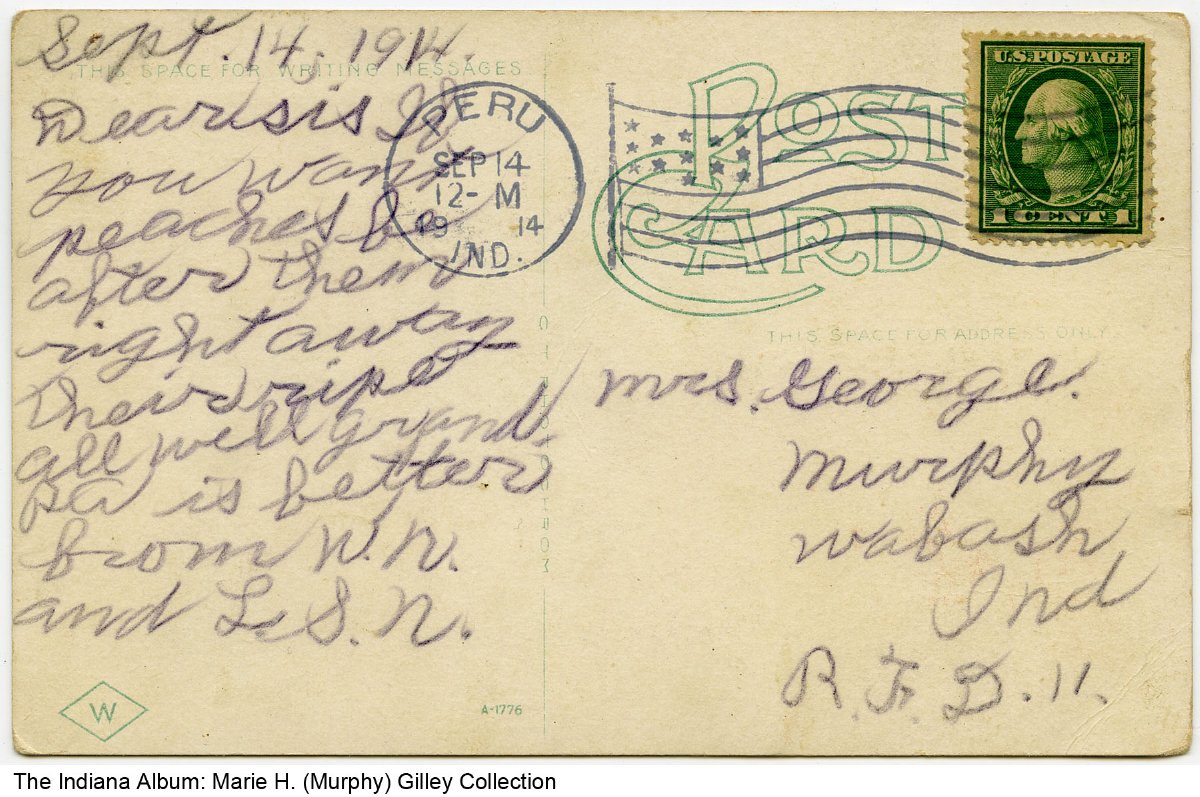 Sept. 14, 1914.
THIS SPACE FOR WRITING MESSAGES
Dear sis If
you want
peaches be
after them
right away
their ripe
all well grand-
pa is better
from W. N.
and L. S. N.
W
A-1776
PERU
SEP 14
12-M
19 14
IND.
POST
CARD
U.S. POSTAGE
1 CENT 1
THIS SPACE FOR ADDRESS ONLY.
Mrs. George.
Murphy
Wabash
Ind
R. F. D. 11.
The Indiana Album: Marie H. (Murphy) Gilley Collection